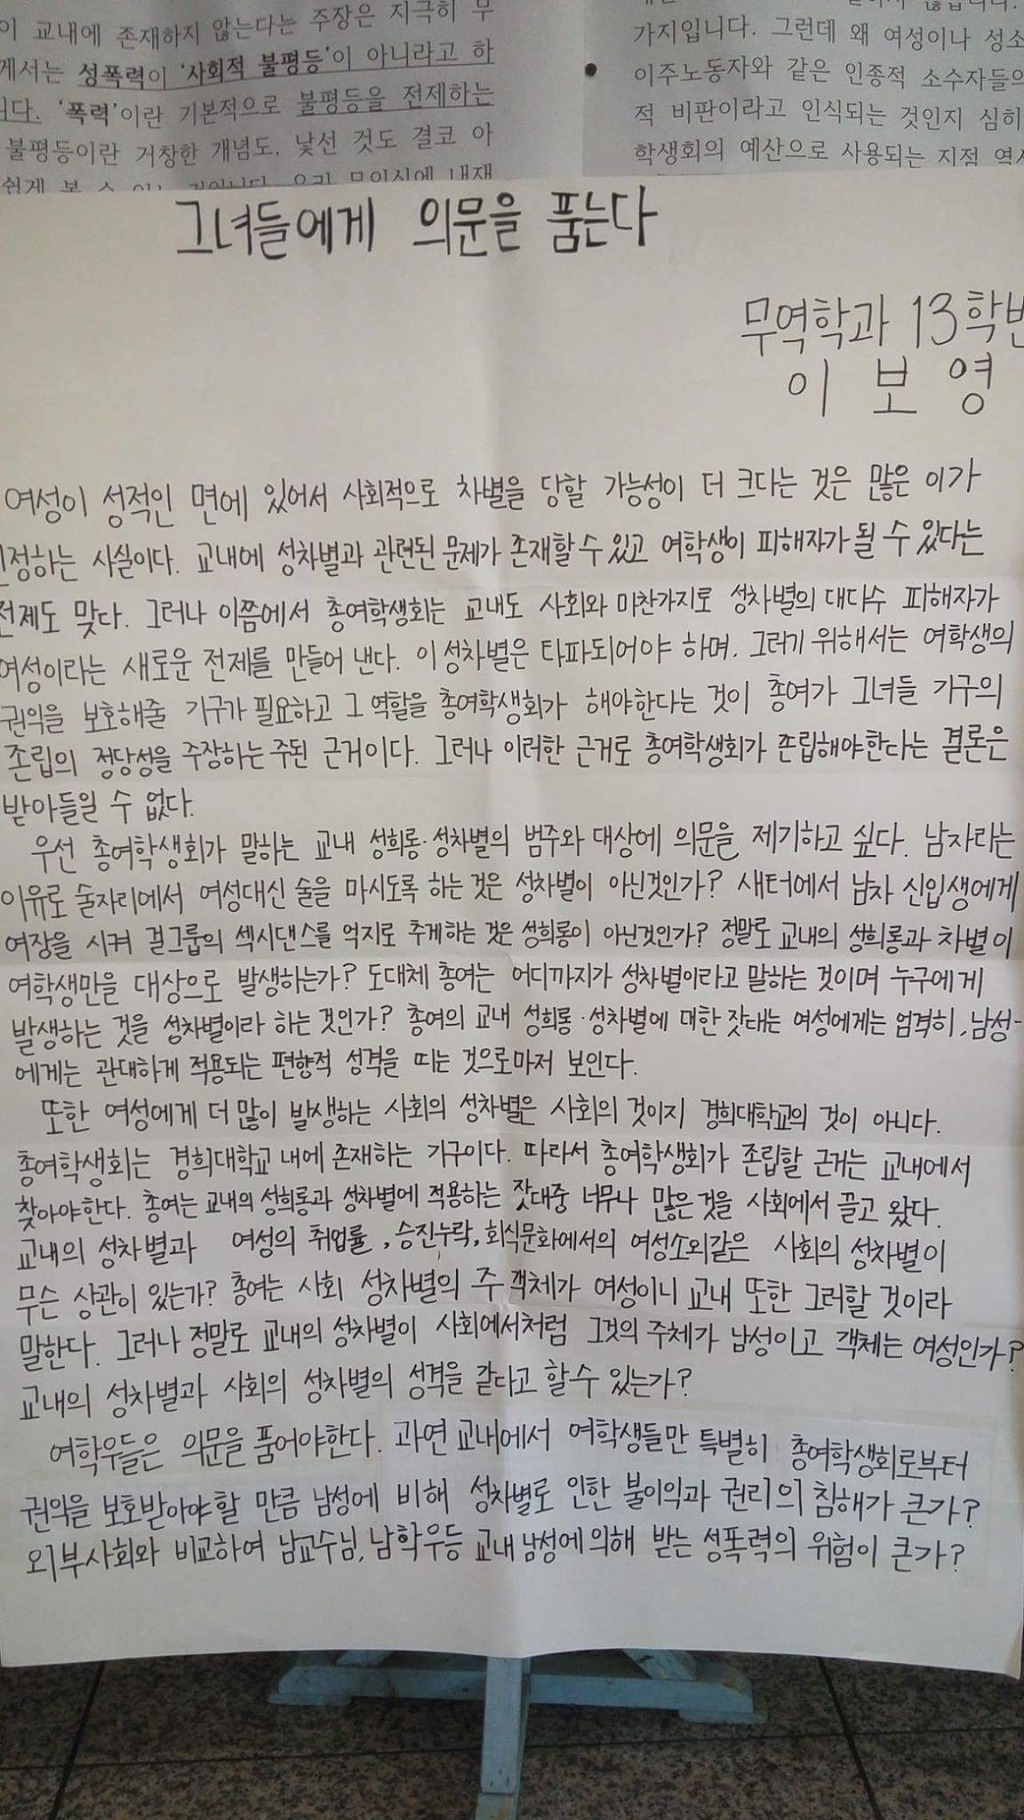 이 교내에 존재하지 않는다는 주장은 지극히 무
께서는 성폭력이 '사회적 불평등'이 아니라고 하
니다. '폭력'이란 기본적으로 불평등을 전제하는
불평등이란 거창한 개념도, 낯선 것도 결코 아
쉽게 볼 수 있는 것입니다. 우리 무의식에 내재
가지입니다. 그런데 왜 여성이나 성소
이주노동자와 같은 인종적 소수자들의
적 비판이라고 인식되는 것인지 심히
학생회의 예산으로 사용되는 지점 역시
그녀들에게 의문을 품는다
무역학과 13학번
이 보 영
여성이 성적인 면에 있어서 사회적으로 차별을 당할 가능성이 더 크다는 것은 많은 이가
인정하는 사실이다. 교내에 성차별과 관련된 문제가 존재할 수 있고 여학생이 피해자가 될 수 있다는
전제도 맞다. 그러나 이쯤에서 총여학생회는 교내도 사회와 마찬가지로 성차별의 대다수 피해자가
여성이라는 새로운 전제를 만들어 낸다. 이 성차별은 타파되어야 하며, 그러기 위해서는 여학생의
권익을 보호해줄 기구가 필요하고 그 역할을 총여학생회가 해야한다는 것이 총여가 그녀들 기구의
존립의 정당성을 주장하는 주된 근거이다. 그러나 이러한 근거로 총여학생회가 존립해야한다는 결론은
받아들일 수 없다.
우선 총여학생회가 말하는 교내 성희롱·성차별의 범주와 대상에 의문을 제기하고 싶다. 남자라는
이유로 술자리에서 여성대신 술을 마시도록 하는 것은 성차별이 아닌것인가? 새터에서 남자 신입생에게
여장을 시켜 걸그룹의 섹시댄스를 억지로 추게하는 것은 성희롱이 아닌것인가? 정말로 교내의 성희롱과 차별이
여학생만을 대상으로 발생하는가? 도대체 총여는 어디까지가 성차별이라고 말하는 것이며 누구에게
발생하는 것을 성차별이라 하는것인가? 총여의 교내 성희롱·성차별에 대한 잣대는 여성에게는 엄격히, 남성-
에게는 관대하게 적용되는 편향적 성격을 띠는 것으로마저 보인다.
또한 여성에게 더 많이 발생하는 사회의 성차별은 사회의 것이지 경희대학교의 것이 아니다.
총여학생회는 경희대학교 내에 존재하는 기구이다. 따라서 총여학생회가 존립할 근거는 교내에서
찾아야한다. 총여는 교내의 성희롱과 성차별에 적용하는 잣대중 너무나 많은것을 사회에서 끌고 왔다.
교내의 성차별과 여성의 취업률, 승진누락, 회식문화에서의 여성소외같은 사회의 성차별이
무슨 상관이 있는가? 총여는 사회 성차별의 주 객체가 여성이니 교내 또한 그러할 것이라
말한다. 그러나 정말로 교내의 성차별이 사회에서처럼 그것의 주체가 남성이고 객체는 여성인가?
교내의 성차별과 사회의 성차별의 성격을 같다고 할수 있는가?
여학우들은 의문을 품어야한다. 과연 교내에서 여학생들만 특별히 총여학생회로부터
권익을 보호받아야할 만큼 남성에 비해 성차별로 인한 불이익과 권리의 침해가 큰가?
외부사회와 비교하여 남교수님, 남학우등 교내 남성에 의해 받는 성폭력의 위험이 큰가?